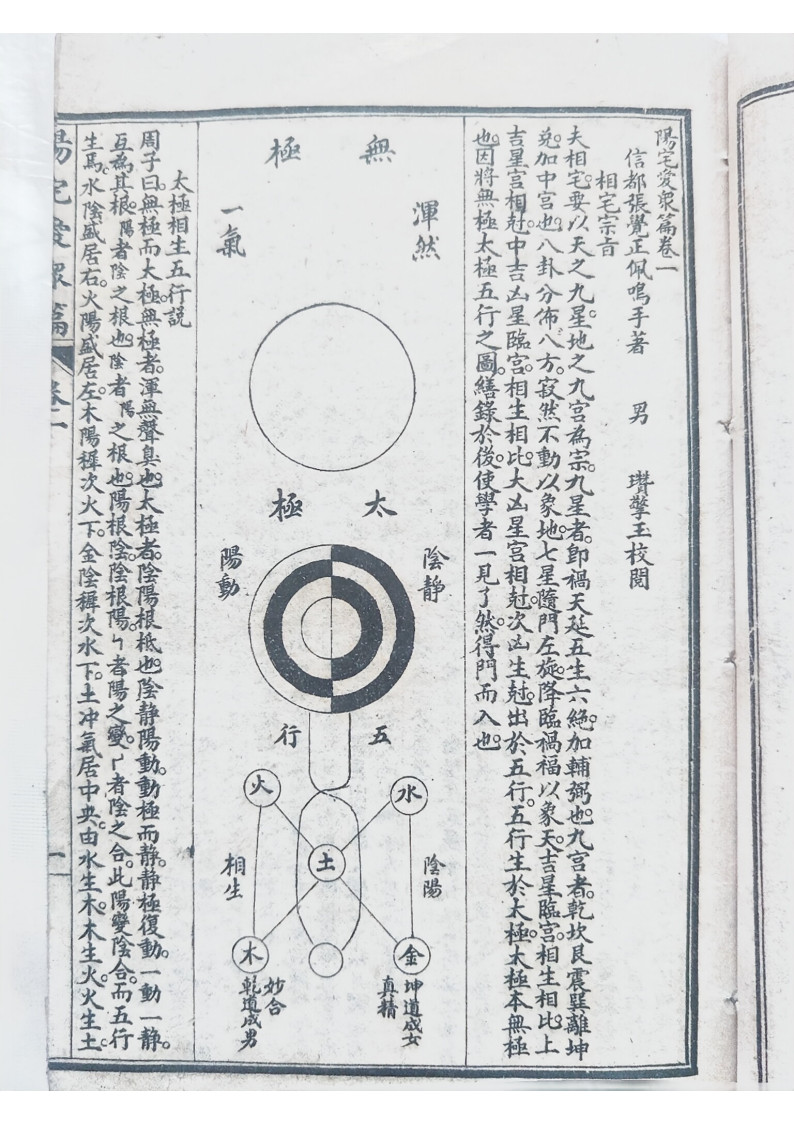 陽宅愛衆篇卷一
信都張覺正佩鳴手著　男　瓚擎玉校閱
相宅宗旨
夫相宅要以天之九星地之九宮為宗。九星者。卽禍天延五生六絕。加輔弼也。九宮者。乾坎艮震巽離坤
兌加中宮也。八卦分佈八方。寂然不動以象地。七星隨門左旋。降臨禍福以象天。吉星臨宮。相生相比。上
吉星宮相尅。中吉凶星臨宮。相生相比。大凶星宮相尅。次凶生尅。出於五行。五行生於太極。太極本無極
也。因將無極太極五行之圖。繕錄於後。使學者一見了然。得門而入也。
無極
渾然
一氣
太極
陰靜
陽動
五行
水
火
土
陰陽
相生
金
木
坤道成女
真精
妙合
乾道成男
太極相生五行説
周子曰。無極而太極。無極者。渾無聲臭也。太極者。陰陽根柢也。陰静陽動。動極而静。静極復動。一動一靜。
互為其根。陽者陰之根也。陰者陽之根也。陽根陰。陰根陽。㇉者陽之變。㇇者陰之合。此陽變陰合。而五行
生焉。水陰盛居右。火陽盛居左。木陽穉次火下。金陰穉次水下。土冲氣居中央。由水生木。木生火。火生土。
陽宅愛衆篇　卷一　一